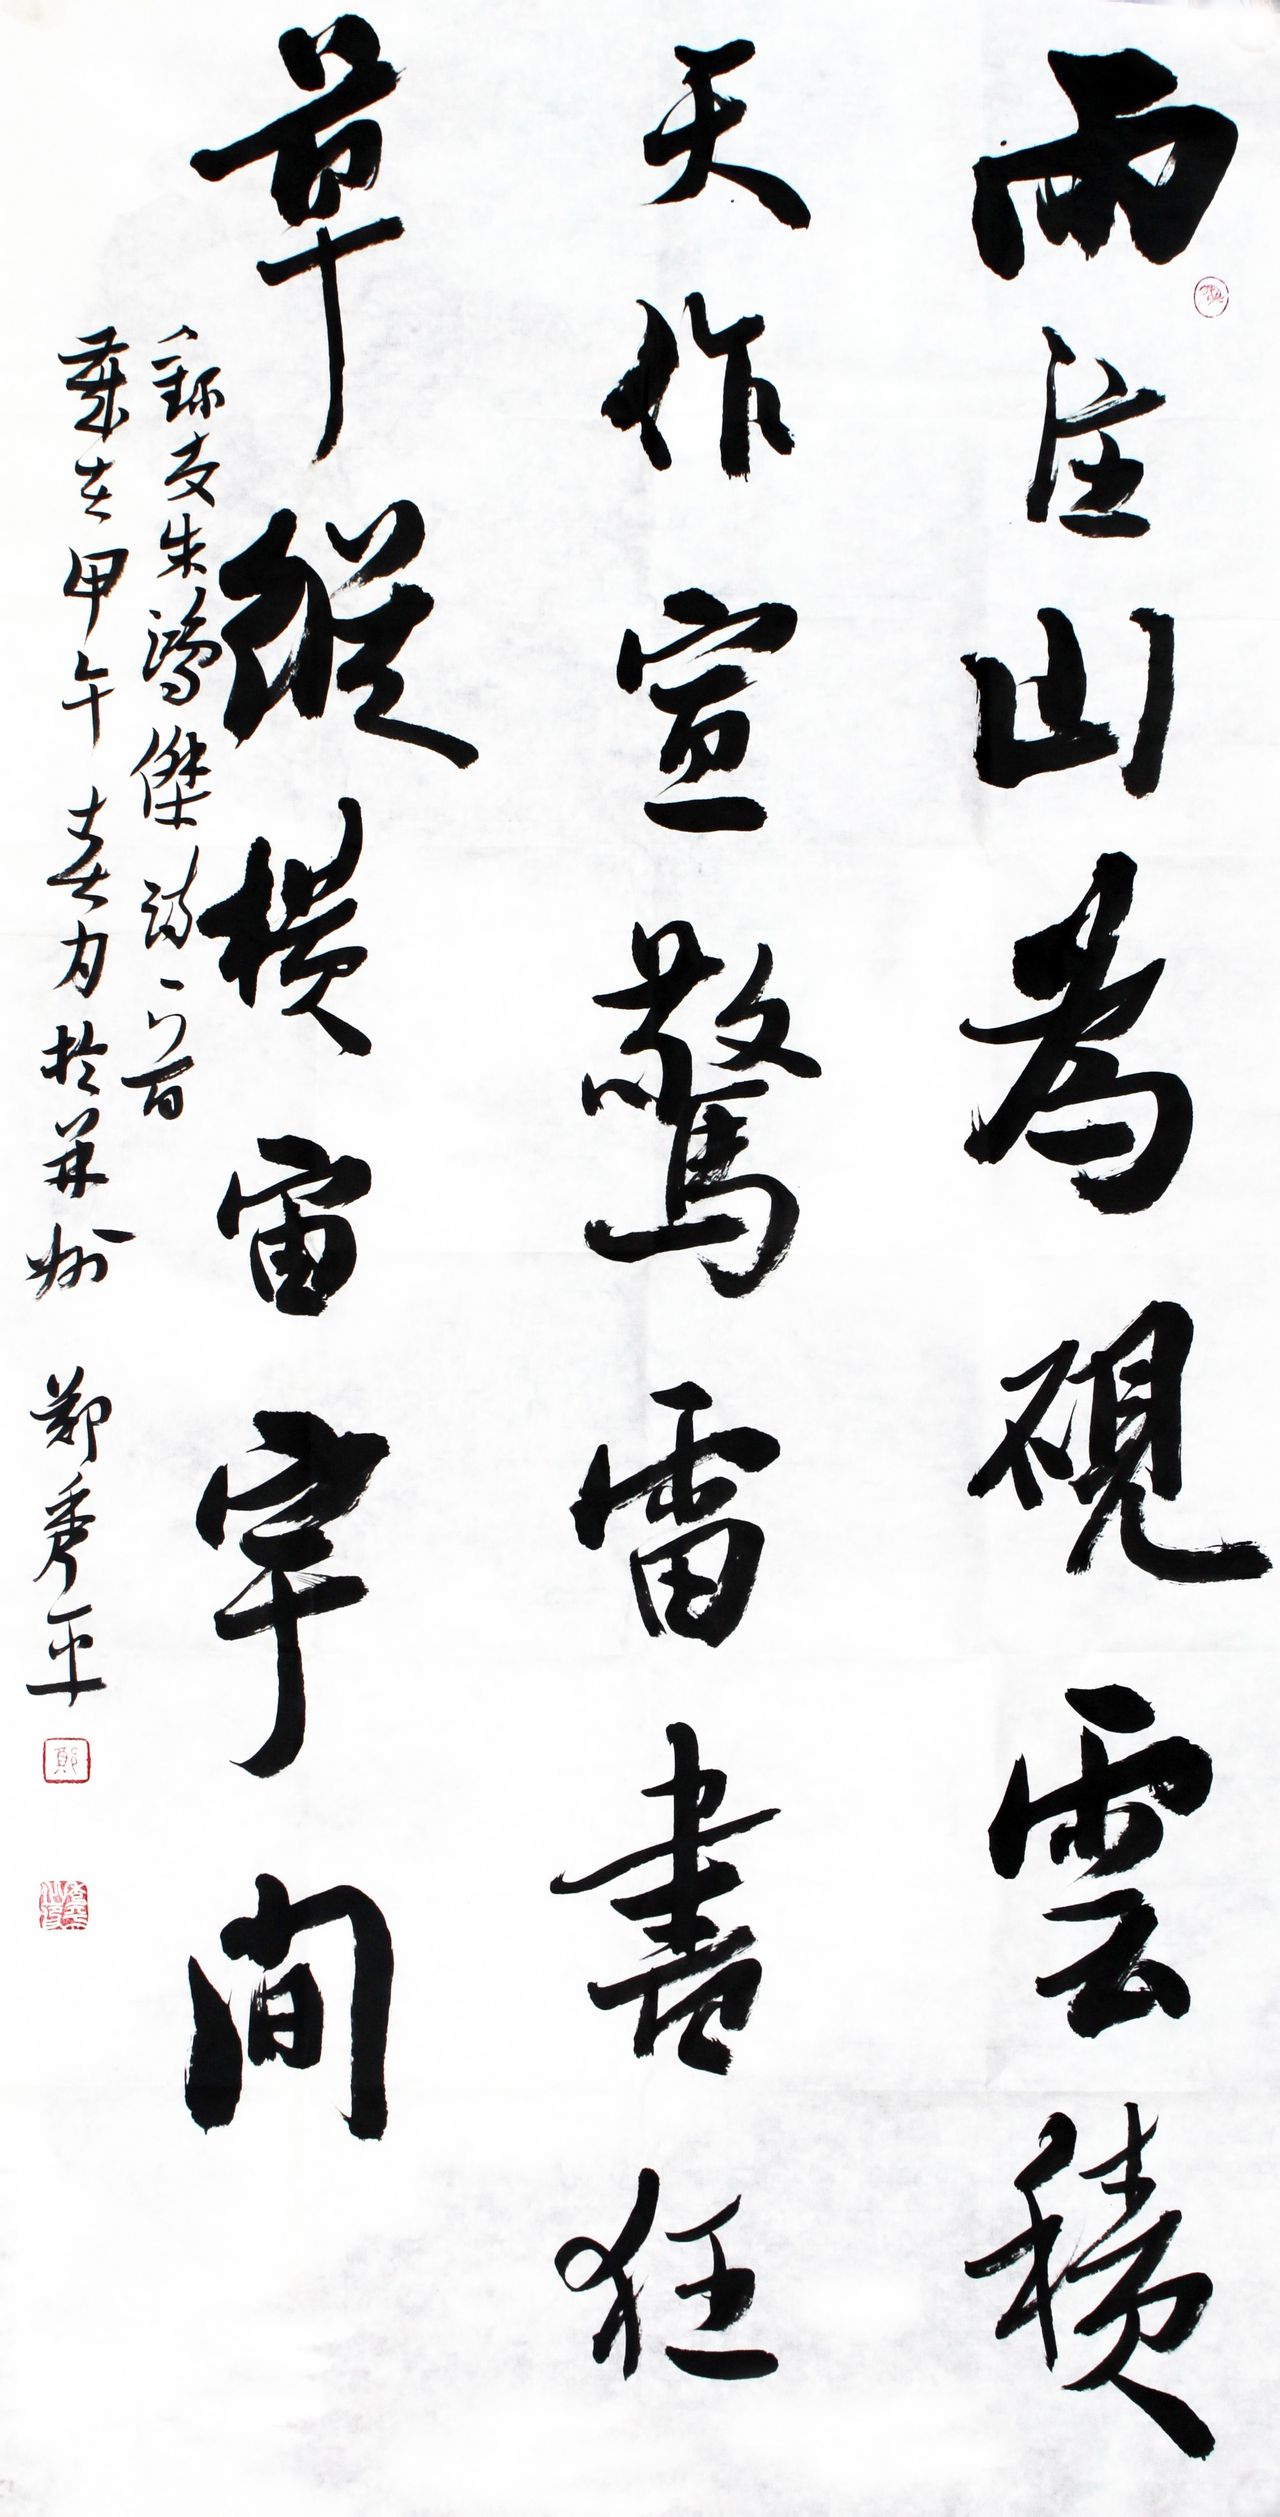 雨注山為硯雲積
天作宣驚雷書狂
草縱橫宙宇間
錄友朱鴻傑詩一首
歲在甲午春月於并州 鄭秀平
鄭